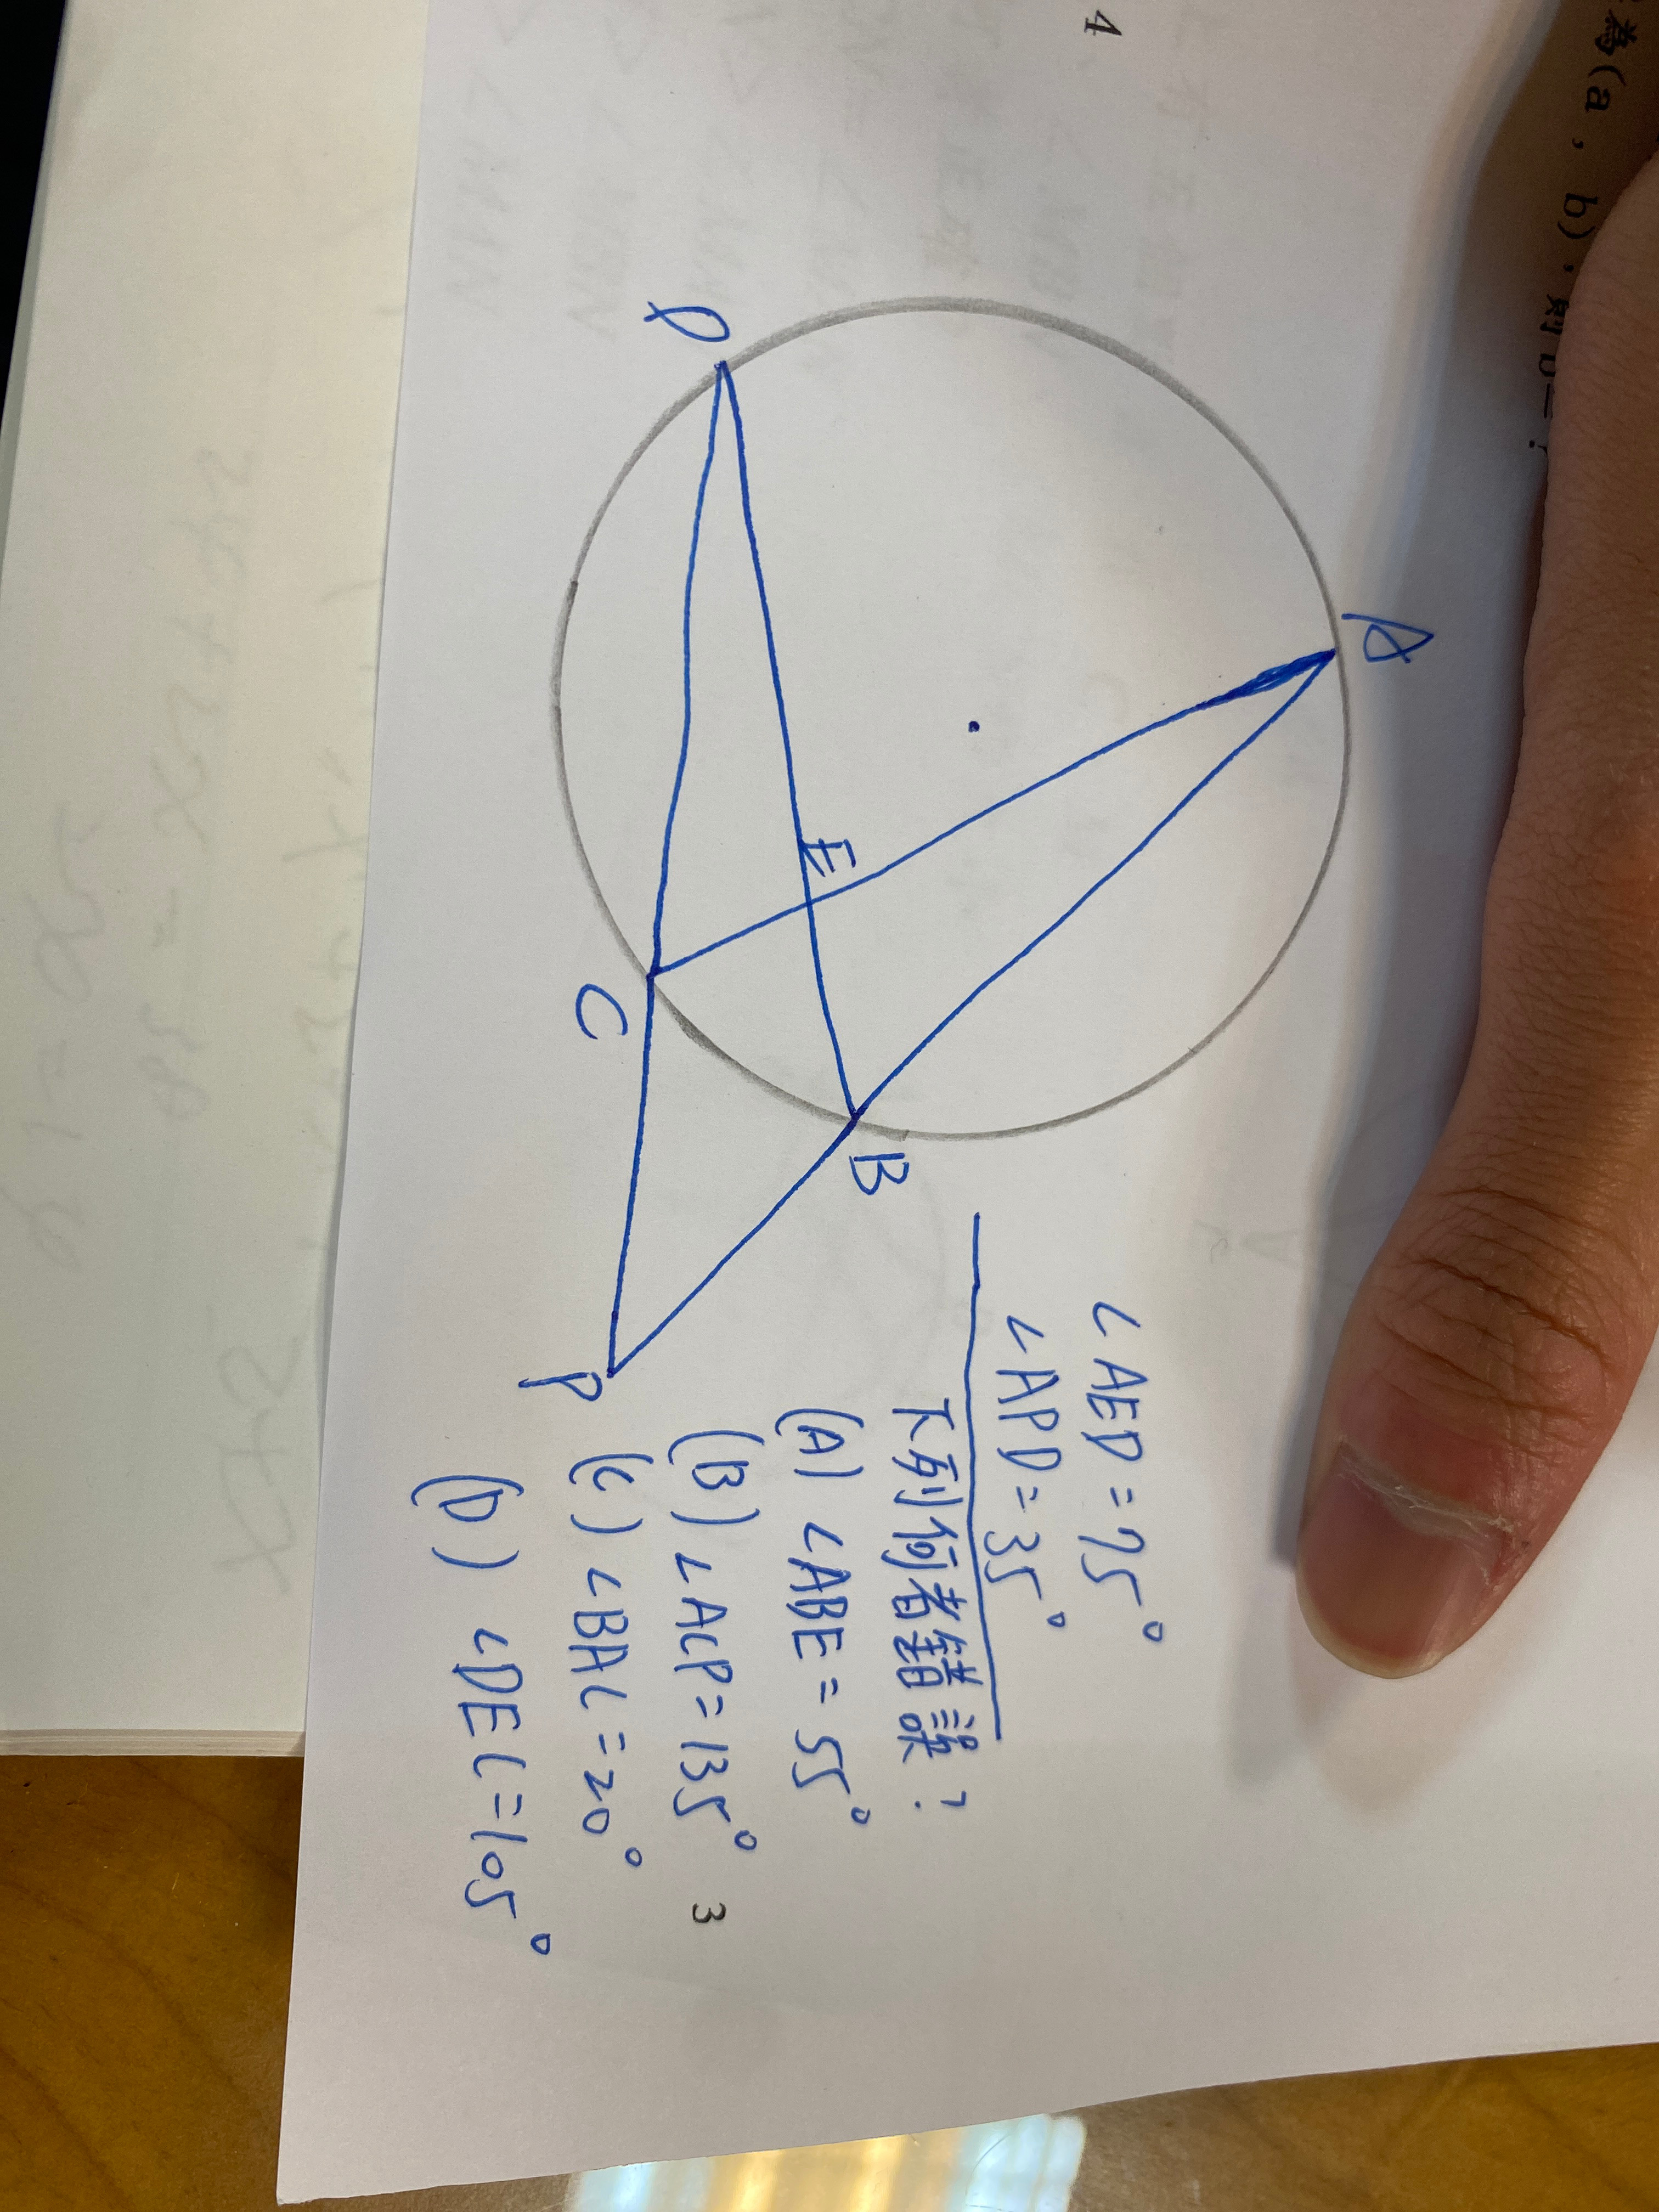 為(a,b),則b=?
4
A
D
E
C
B
P
∠AED=75°
∠APD=35°
下列何者錯誤?
(A) ∠ABE=55°
(B) ∠ACP=135°
(C) ∠BAC=20°
(D) ∠DEC=105°
3